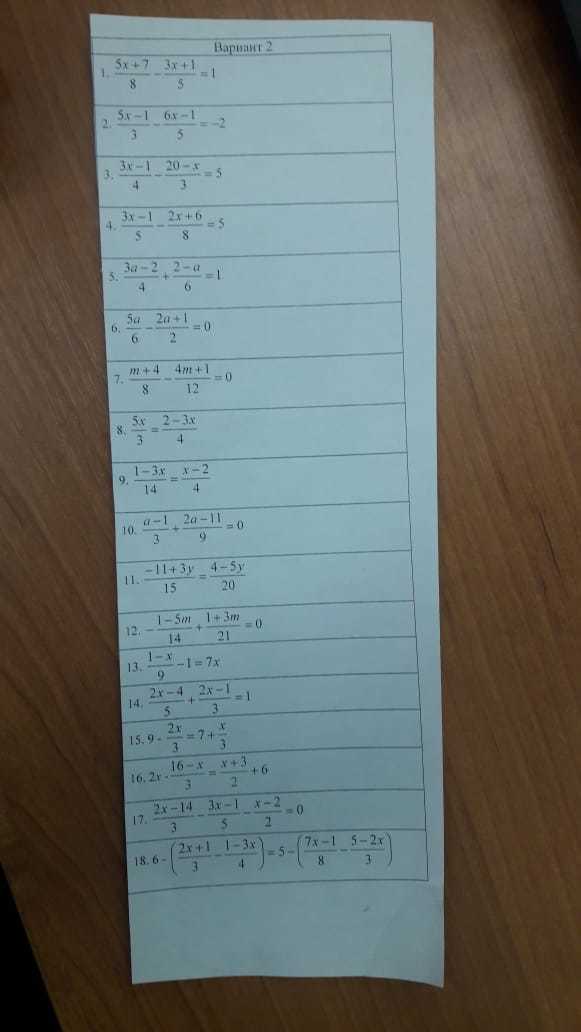 Вариант 2
1. \frac{5x+7}{8} - \frac{3x+1}{5} = 1
2. \frac{5x-1}{3} - \frac{6x-1}{5} = -2
3. \frac{3x-1}{4} - \frac{20-x}{3} = 5
4. \frac{3x-1}{5} - \frac{2x+6}{8} = 5
5. \frac{3a-2}{4} + \frac{2-a}{6} = 1
6. \frac{5a}{6} - \frac{2a+1}{2} = 0
7. \frac{m+4}{8} - \frac{4m+1}{12} = 0
8. \frac{5x}{3} = \frac{2-3x}{4}
9. \frac{1-3x}{14} = \frac{x-2}{4}
10. \frac{a-1}{3} + \frac{2a-11}{9} = 0
11. \frac{-11+3y}{15} = \frac{4-5y}{20}
12. -\frac{1-5m}{14} + \frac{1+3m}{21} = 0
13. \frac{1-x}{9} - 1 = 7x
14. \frac{2x-4}{5} + \frac{2x-1}{3} = 1
15. 9 - \frac{2x}{3} = 7 + \frac{x}{3}
16. 2x - \frac{16-x}{3} = \frac{x+3}{2} + 6
17. \frac{2x-14}{3} - \frac{3x-1}{5} - \frac{x-2}{2} = 0
18. 6 - \left(\frac{2x+1}{3} - \frac{1-3x}{4}\right) = 5 - \left(\frac{7x-1}{8} - \frac{5-2x}{3}\right)